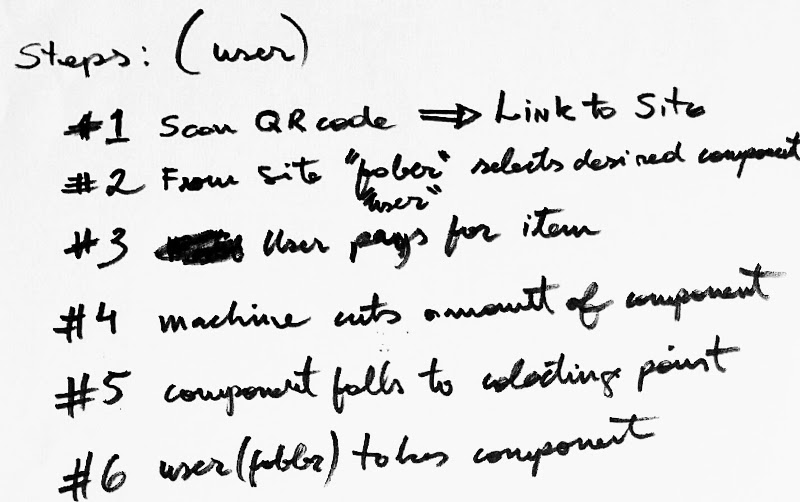 Steps: (user)
#1 Scan QR code ⇒ Link to Site
#2 From Site "fober" selects desired component
"user"
#3 User pays for item
#4 machine cuts amount of component
#5 component falls to colecting point
#6 user (fobbr) takes component